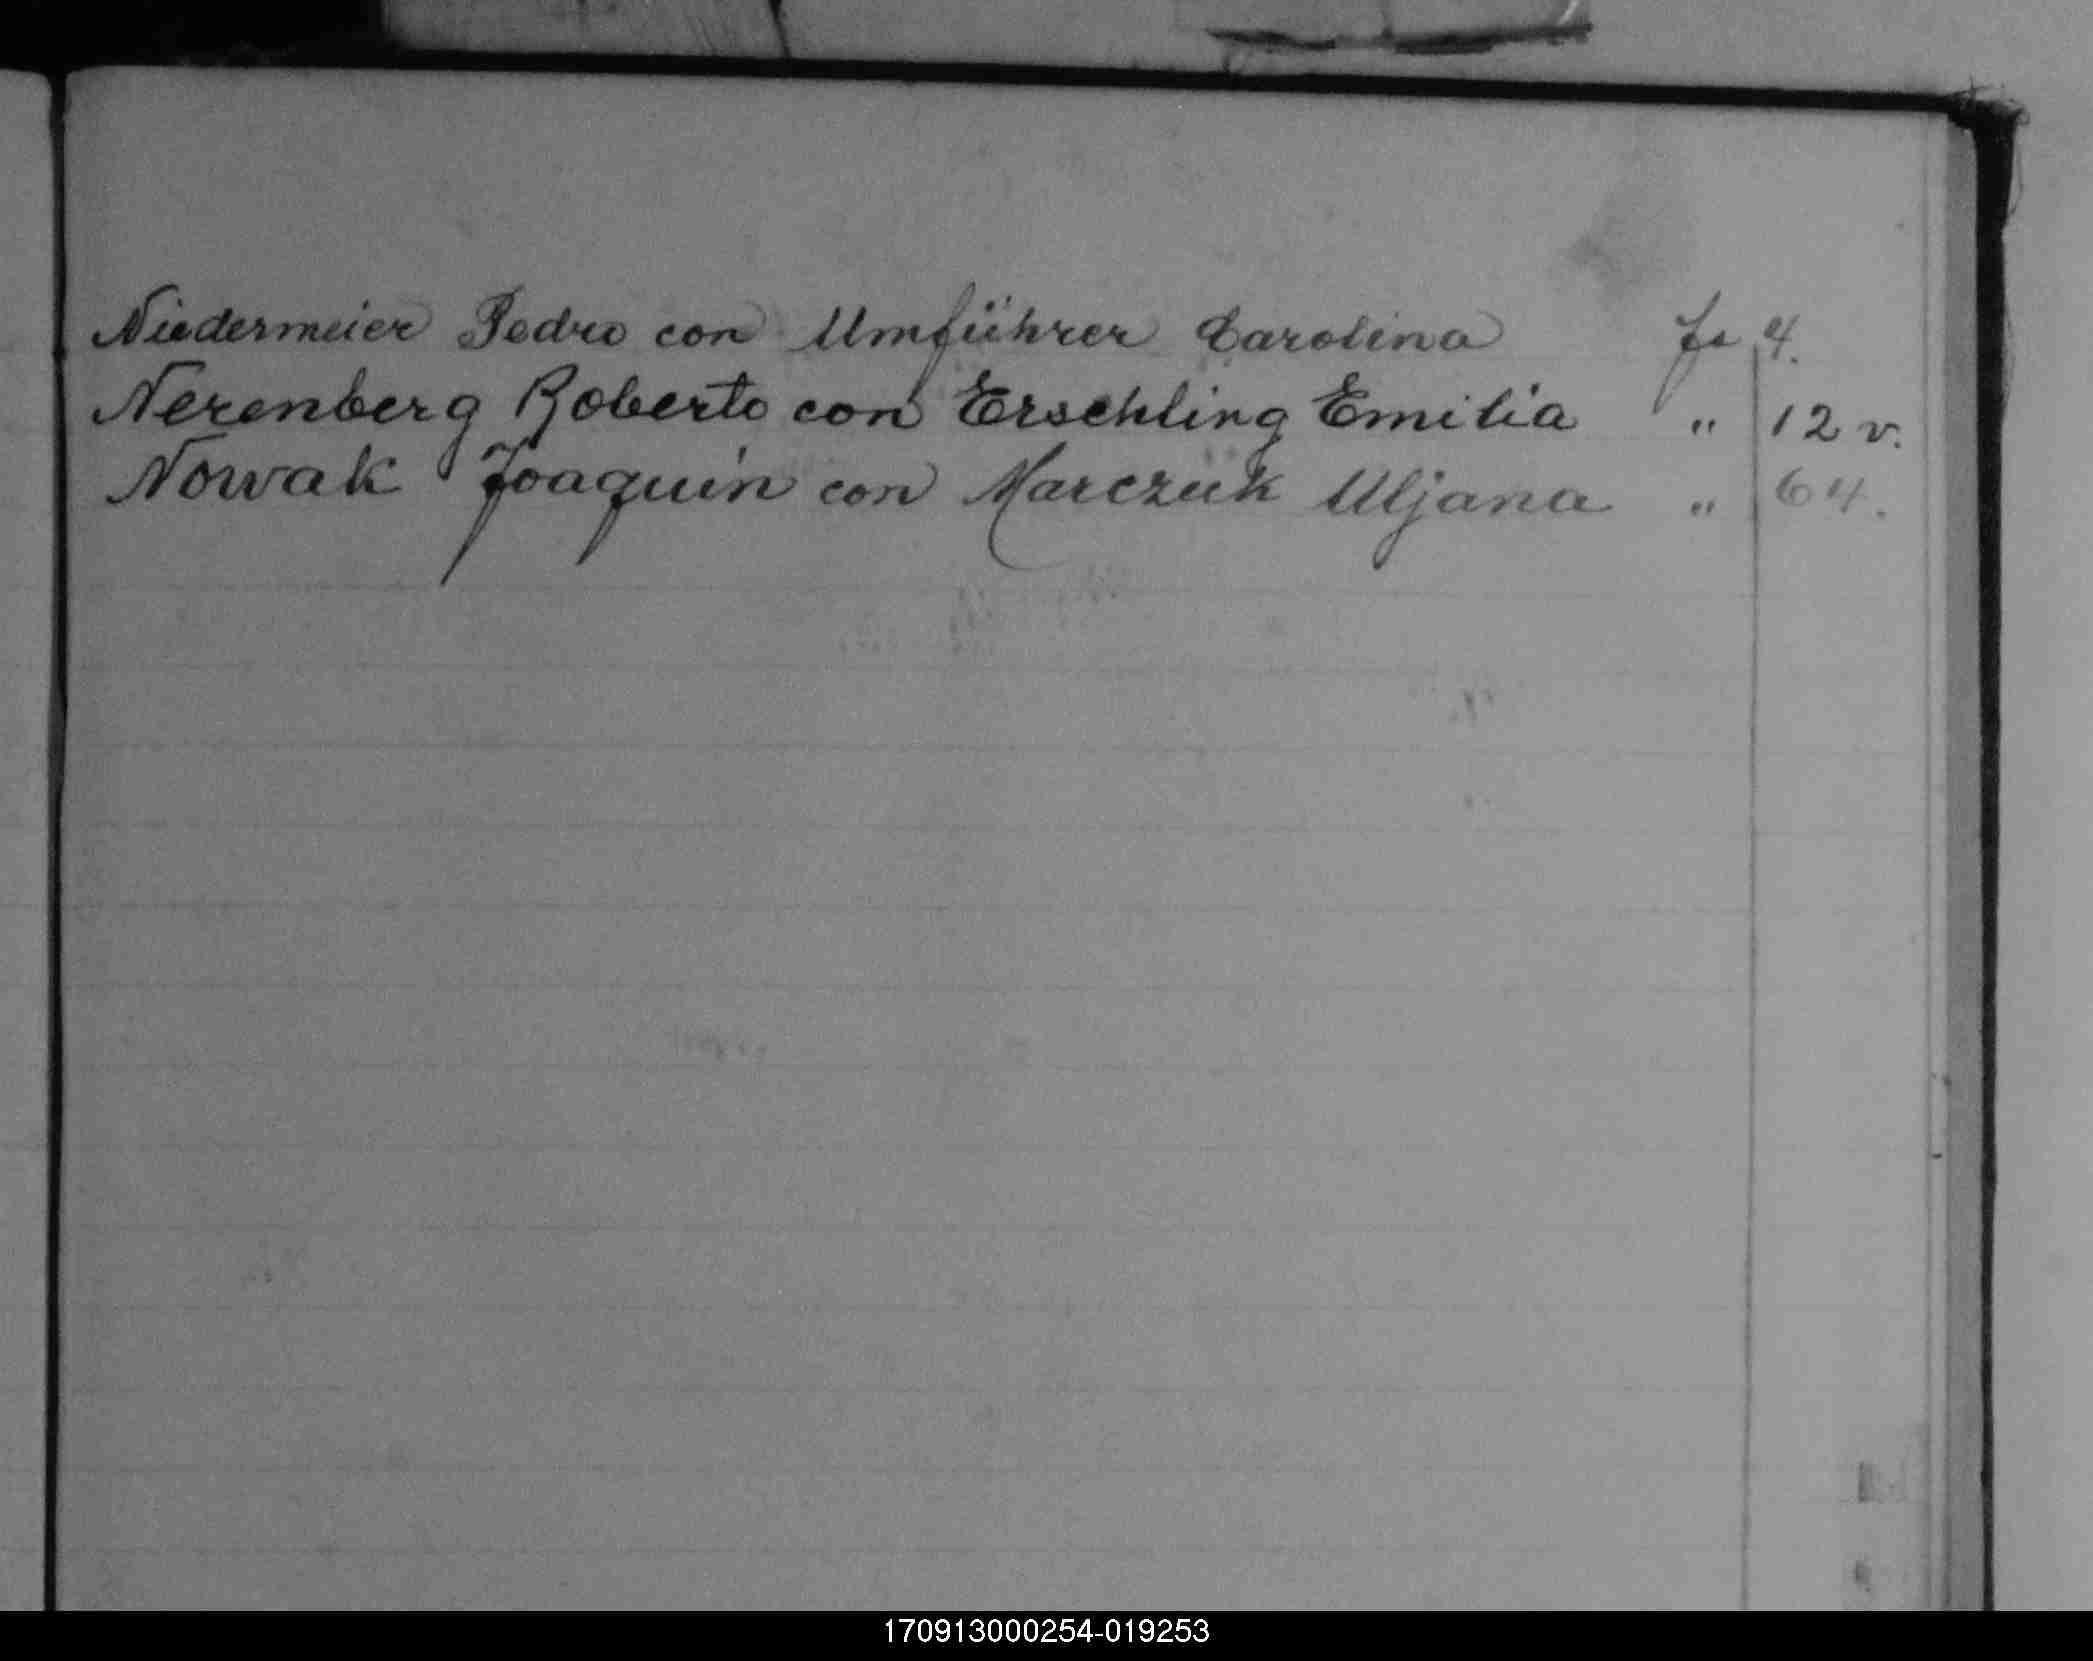 Niedermeier Pedro con Umführer Carolina fs 4.
Nerenberg Roberto con Erschling Emilia " 12 v.
Nowak Joaquín con Marczuk Uljana " 64.
170913000254-019253